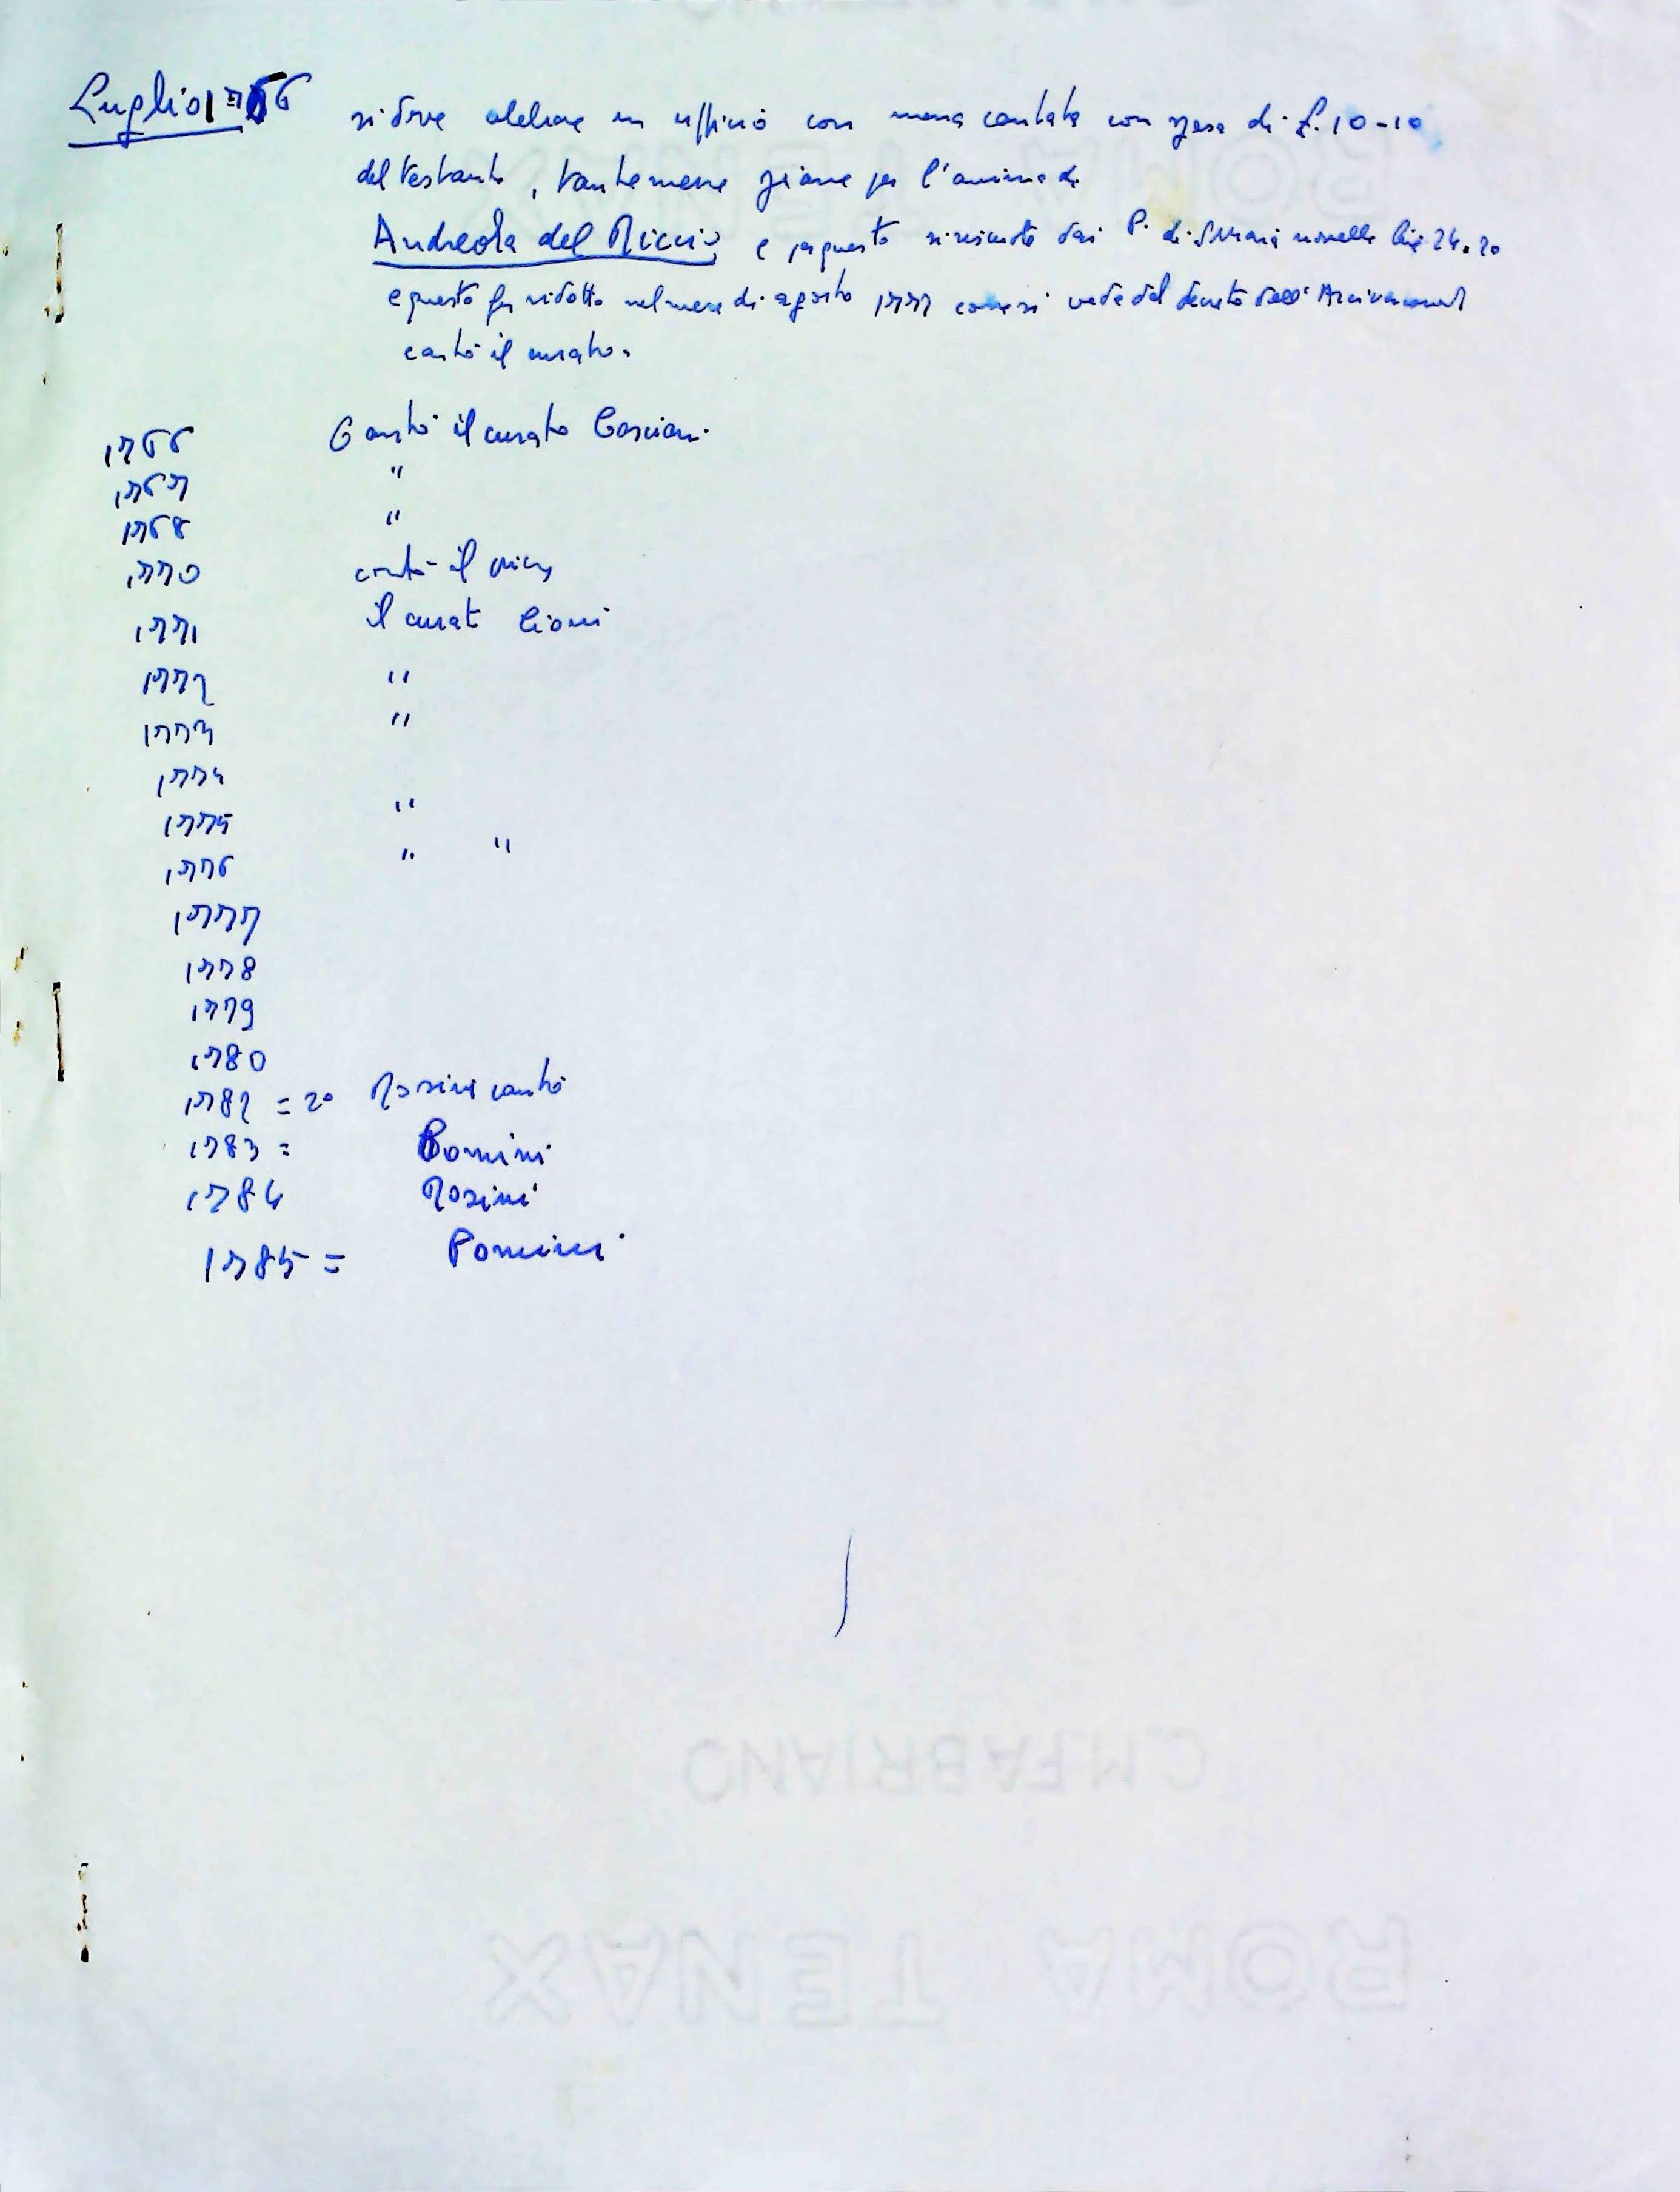 Luglio 1766 si deve celebrare un uffizio con messa cantata con spesa di £. 10-10
del testante, tante messe piane per l'anima di
Andreola del Riccio e per questo si riscuote dai P. di S. Maria novella lire 24.20
e questo fu ridotto nel mese di agosto 1777 come si vede dal decreto dell'
cantò il curato.
1766 Cantò il curato Casciani
1767 "
1768 "
1770 cantò il
1771 il curat Cioni
1772 "
1773 "
1774
1775 "
1776 " "
1777
1778
1779
1780
1782 = 20 Rosini cantò
1783 = Pomini
1784 Rosini
1785 = Pomini
C.M.FABRIANO
ROMA TENAX